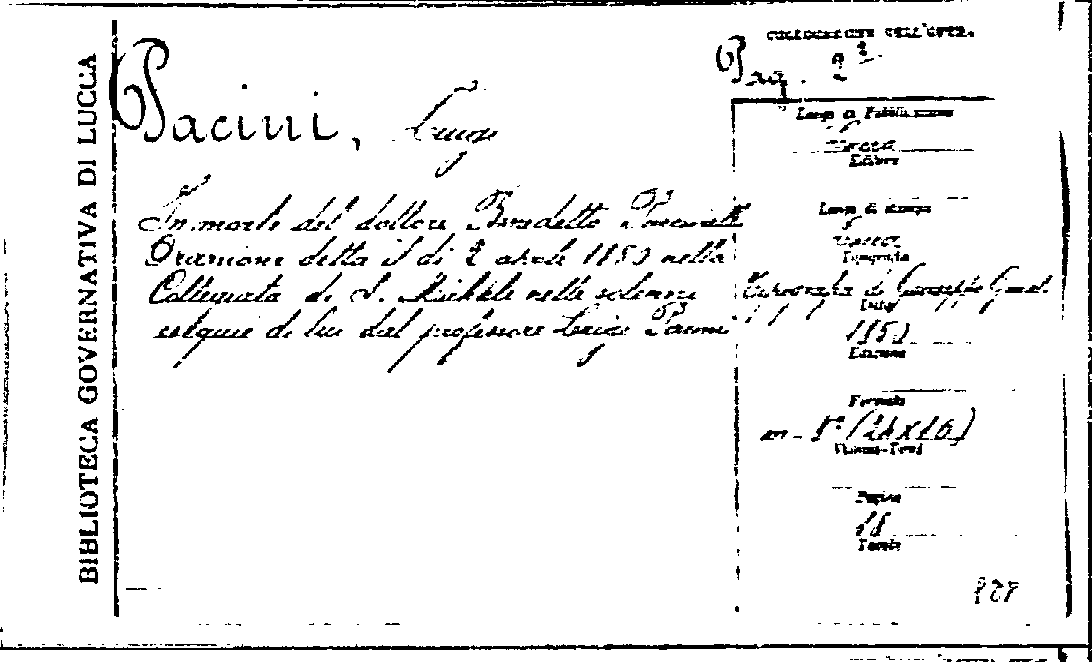 BIBLIOTECA GOVERNATIVA DI LUCCA
Pacini, Luigi
In morte del dottore Benedetto
Orazione detta il di 2 aprile 1850 nella
Collegiata di S. Michele nelle solenni
esequie di lui dal professore Luigi Pacini
COLLOCAZIONE DELL'OPERA
Pag. 2ª
Luogo di Pubblicazione
Lucca
Editore
Luogo di stampa
Lucca
Tipografia
Tipografia di Giuseppe
Data
1850
Edizione
Formato
in - 8° (24×16)
Volume-Tomi
Pagine
18
Tavole